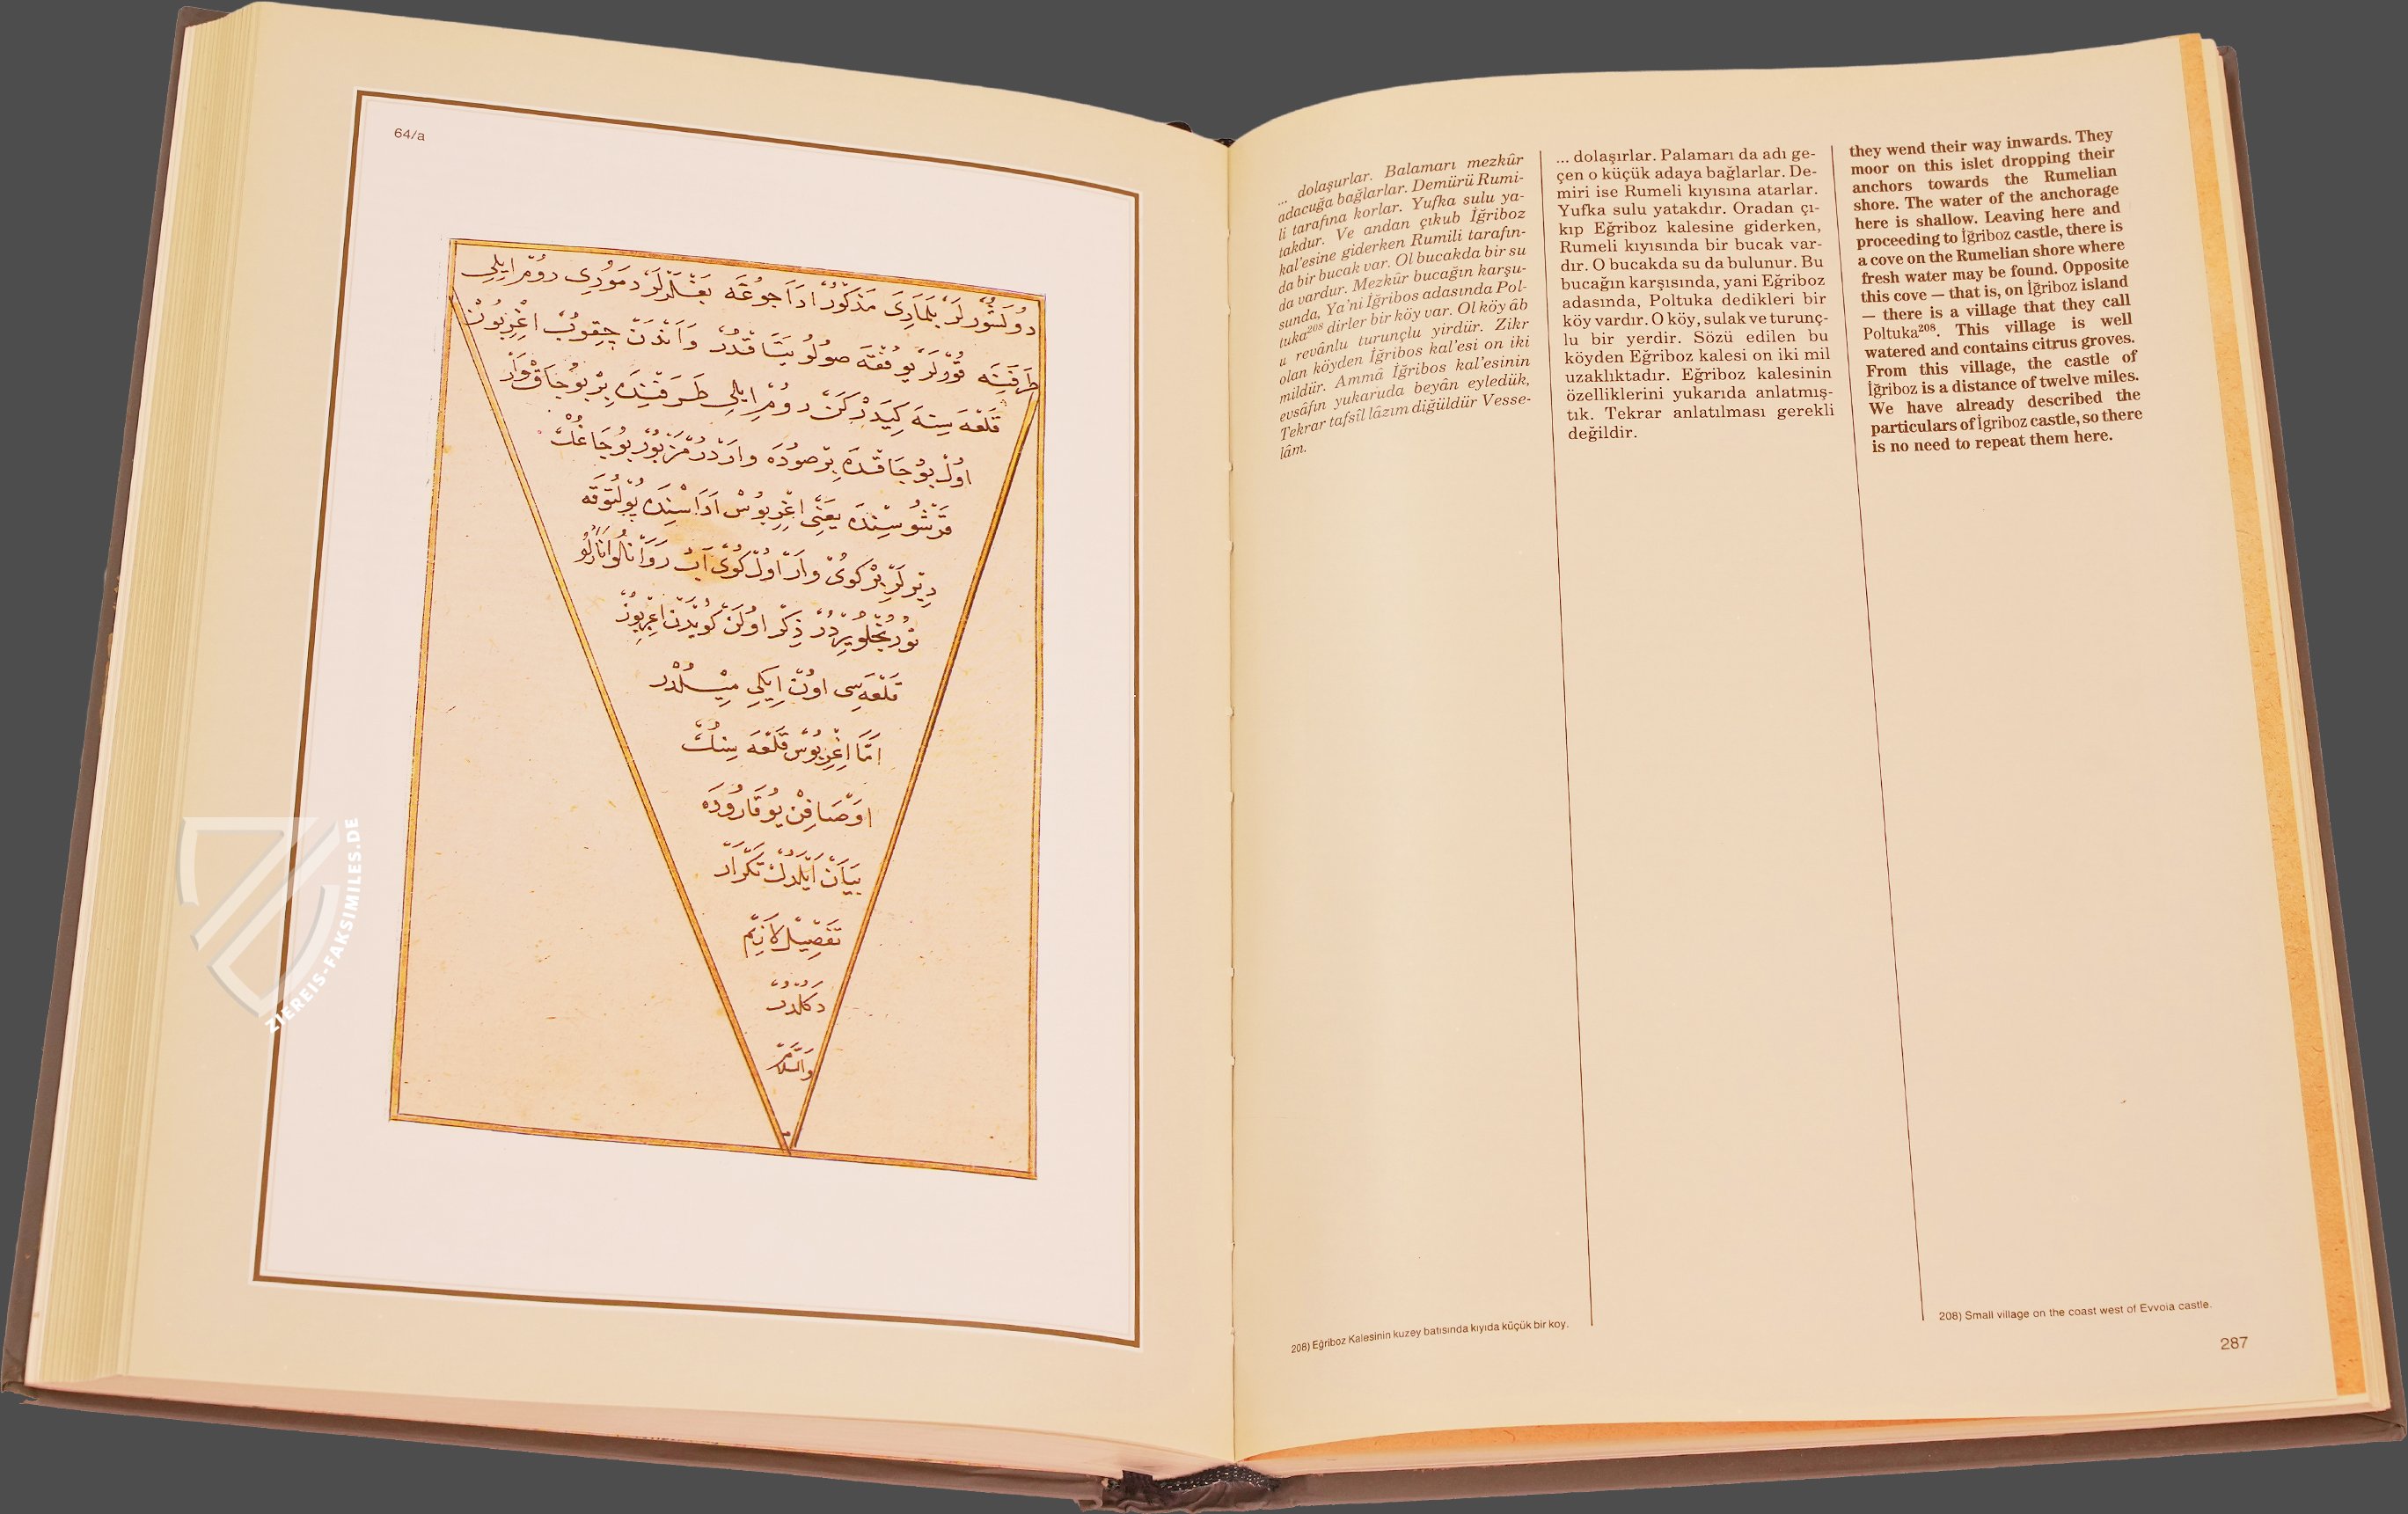 64/a
دولشورلر بلمارى مذكور اداجوغه بغلرلر دمورى روم ايلى
طرفنه قورلر يوفقه صولو يتاقدر واندن چقوب اغريبوز
قلعه سنه كيدركن روم ايلى طرفنده بر بوجاق وار
اول بوجاقده بر صوده واردر مزبور بوجاغك
قرشوسنده يعنى اغريبوس اداسنده پولتوقه
ديرلر بر كوى وار اول كوى آب روانلو
تورنجلو يردر ذكر اولن كويدن اغريبوز
قلعه سى اون ايكى ميلدر
اما اغريبوس قلعه سنك
اوصافن يوقاروده
بيان ايلدك تكرار
تفصيل لازم
دكلدر
والسلام
ZIEREIS-FAKSIMILES.DE
... dolaşurlar. Balamarı mezkûr
adacuğa bağlarlar. Demürü Rumi-
li tarafına korlar. Yufka sulu ya-
takdur. Ve andan çıkub İğriboz
kal'esine giderken Rumili tarafın-
da bir bucak var. Ol bucakda bir su
da vardur. Mezkûr bucağın karşu-
sunda, Ya'ni İğribos adasında Pol-
tuka²⁰⁸ dirler bir köy var. Ol köy âb
u revânlu turunçlu yirdür. Zikr
olan köyden İğribos kal'esi on iki
mildür. Ammâ İğribos kal'esinin
evsâfın yukaruda beyân eyledük,
Tekrar tafsîl lâzım değüldür Vesse-
lâm.
... dolaşırlar. Palamarı da adı ge-
çen o küçük adaya bağlarlar. De-
miri ise Rumeli kıyısına atarlar.
Yufka sulu yatakdır. Oradan çı-
kıp Eğriboz kalesine giderken,
Rumeli kıyısında bir bucak var-
dır. O bucakda su da bulunur. Bu
bucağın karşısında, yani Eğriboz
adasında, Poltuka dedikleri bir
köy vardır. O köy, sulak ve turunç-
lu bir yerdir. Sözü edilen bu
köyden Eğriboz kalesi on iki mil
uzaklıktadır. Eğriboz kalesinin
özelliklerini yukarıda anlatmış-
tık. Tekrar anlatılması gerekli
değildir.
they wend their way inwards. They
moor on this islet dropping their
anchors towards the Rumelian
shore. The water of the anchorage
here is shallow. Leaving here and
proceeding to İğriboz castle, there is
a cove on the Rumelian shore where
fresh water may be found. Opposite
this cove — that is, on İğriboz island
— there is a village that they call
Poltuka²⁰⁸. This village is well
watered and contains citrus groves.
From this village, the castle of
İğriboz is a distance of twelve miles.
We have already described the
particulars of İğriboz castle, so there
is no need to repeat them here.
208) Eğriboz Kalesinin kuzey batısında kıyıda küçük bir koy.
208) Small village on the coast west of Evvoia castle.
287